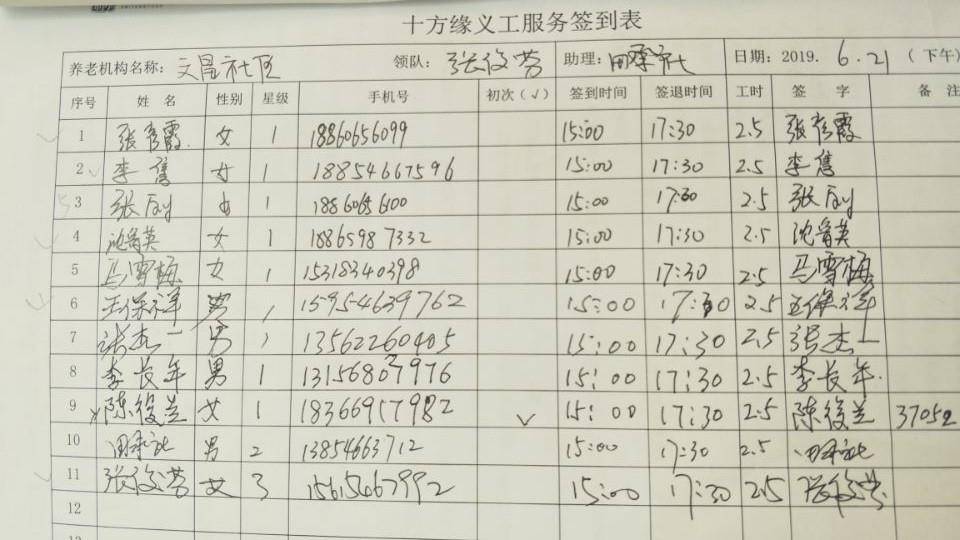 十方缘义工服务签到表
养老机构名称: 文昌社区 领队: 张俊芳 助理: 日期: 2019. 6.21 (下午)
序号 姓名 性别 星级 手机号 初次(√) 签到时间 签退时间 工时 签字 备注
1 张秀霞 女 1 18860656099 15:00 17:30 2.5 张秀霞
2 李隽 女 1 18854667596 15:00 17:30 2.5 李隽
3 张刚 女 1 18860656100 15:00 17:30 2.5 张刚
4 沈曾英 女 1 18865987332 15:00 17:30 2.5 沈曾英
5 马雪梅 女 1 15318340398 15:00 17:30 2.5 马雪梅
6 王保祥 男 1 15954639762 15:00 17:30 2.5 王保祥
7 张杰一 男 1 13562260405 15:00 17:30 2.5 张杰一
8 李长年 男 1 13156807976 15:00 17:30 2.5 李长年
9 陈俊兰 女 1 18366917982 √ 15:00 17:30 2.5 陈俊兰 37052
10 男 2 13854663712 15:00 17:30 2.5
11 张俊芳 女 3 15615467992 15:00 17:30 2.5 张俊芳
12